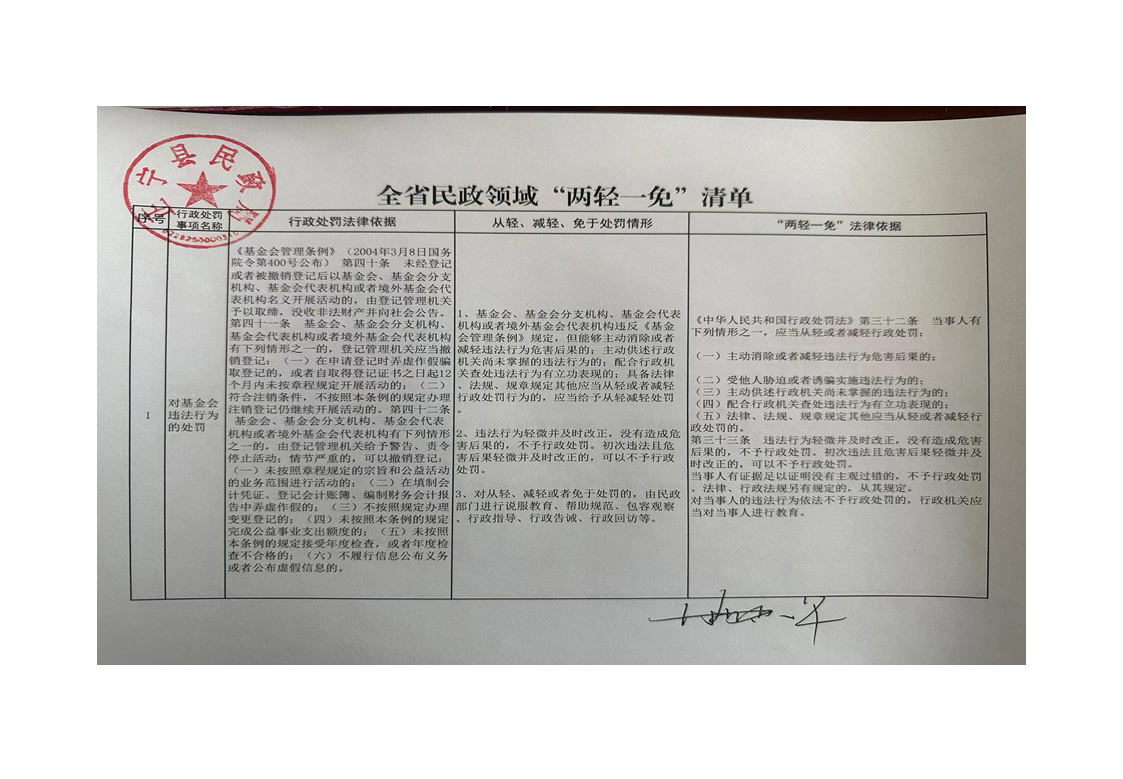 宁县民政局
全省民政领域“两轻一免”清单
序号
行政处罚
事项名称
行政处罚法律依据
从轻、减轻、免于处罚情形
“两轻一免”法律依据
1
对基金会
违法行为
的处罚
《基金会管理条例》（2004年3月8日国务
院令第400号公布） 第四十条　未经登记
或者被撤销登记后以基金会、基金会分支
机构、基金会代表机构或者境外基金会代
表机构名义开展活动的，由登记管理机关
予以取缔，没收非法财产并向社会公告。
第四十一条　基金会、基金会分支机构、
基金会代表机构或者境外基金会代表机构
有下列情形之一的，登记管理机关应当撤
销登记：（一）在申请登记时弄虚作假骗
取登记的，或者自取得登记证书之日起12
个月内未按章程规定开展活动的；（二）
符合注销条件，不按照本条例的规定办理
注销登记仍继续开展活动的。第四十二条
基金会、基金会分支机构、基金会代表
机构或者境外基金会代表机构有下列情形
之一的，由登记管理机关给予警告、责令
停止活动；情节严重的，可以撤销登记：
（一）未按照章程规定的宗旨和公益活动
的业务范围进行活动的；（二）在填制会
计凭证、登记会计账簿、编制财务会计报
告中弄虚作假的；（三）不按照规定办理
变更登记的；（四）未按照本条例的规定
完成公益事业支出额度的；（五）未按照
本条例的规定接受年度检查，或者年度检
查不合格的；（六）不履行信息公布义务
或者公布虚假信息的。
1、基金会、基金会分支机构、基金会代表
机构或者境外基金会代表机构违反《基金
会管理条例》规定，但能够主动消除或者
减轻违法行为危害后果的；主动供述行政
机关尚未掌握的违法行为的；配合行政机
关查处违法行为有立功表现的；具备法律
、法规、规章规定其他应当从轻或者减轻
行政处罚行为的，应当给予从轻减轻处罚
。
2、违法行为轻微并及时改正，没有造成危
害后果的，不予行政处罚。初次违法且危
害后果轻微并及时改正的，可以不予行政
处罚。
3、对从轻、减轻或者免于处罚的，由民政
部门进行说服教育、帮助规范、包容观察
、行政指导、行政告诫、行政回访等。
《中华人民共和国行政处罚法》第三十二条　当事人有
下列情形之一，应当从轻或者减轻行政处罚：
（一）主动消除或者减轻违法行为危害后果的；
（二）受他人胁迫或者诱骗实施违法行为的；
（三）主动供述行政机关尚未掌握的违法行为的；
（四）配合行政机关查处违法行为有立功表现的；
（五）法律、法规、规章规定其他应当从轻或者减轻行
政处罚的。
第三十三条　违法行为轻微并及时改正，没有造成危害
后果的，不予行政处罚。初次违法且危害后果轻微并及
时改正的，可以不予行政处罚。
当事人有证据足以证明没有主观过错的，不予行政处罚
。法律、行政法规另有规定的，从其规定。
对当事人的违法行为依法不予行政处罚的，行政机关应
当对当事人进行教育。